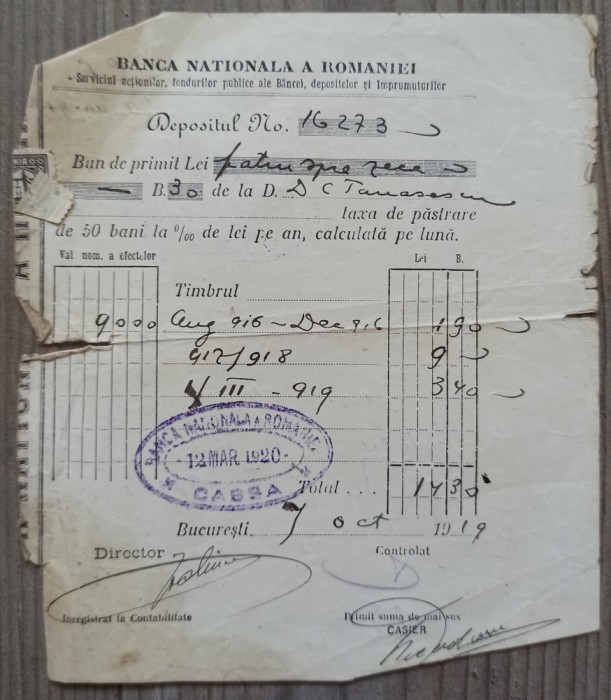 BANCA NATIONALA A ROMANIEI
Serviciul acțiunilor, fondurilor publice ale Băncei, depositelor și împrumuturilor
Depositul No. 16273
Bun de primit Lei patru spre zece
B. 30 de la D. D C Tanasescu
taxa de păstrare
de 50 bani la ‰ de lei pe an, calculată pe lună.
Val. nom. a efectelor Lei B.
Timbrul
9000 Aug 916 – Dec 916 1 90
917/918 9
III – 919 3 40
BANCA NATIONALA A ROMANIEI
12 MAR. 1920
CASSA
Total . . . 14 30
București. 7 Oct 1919
Director Controlat
Inregistrat la Contabilitate Primit suma de mai sus
CASIER